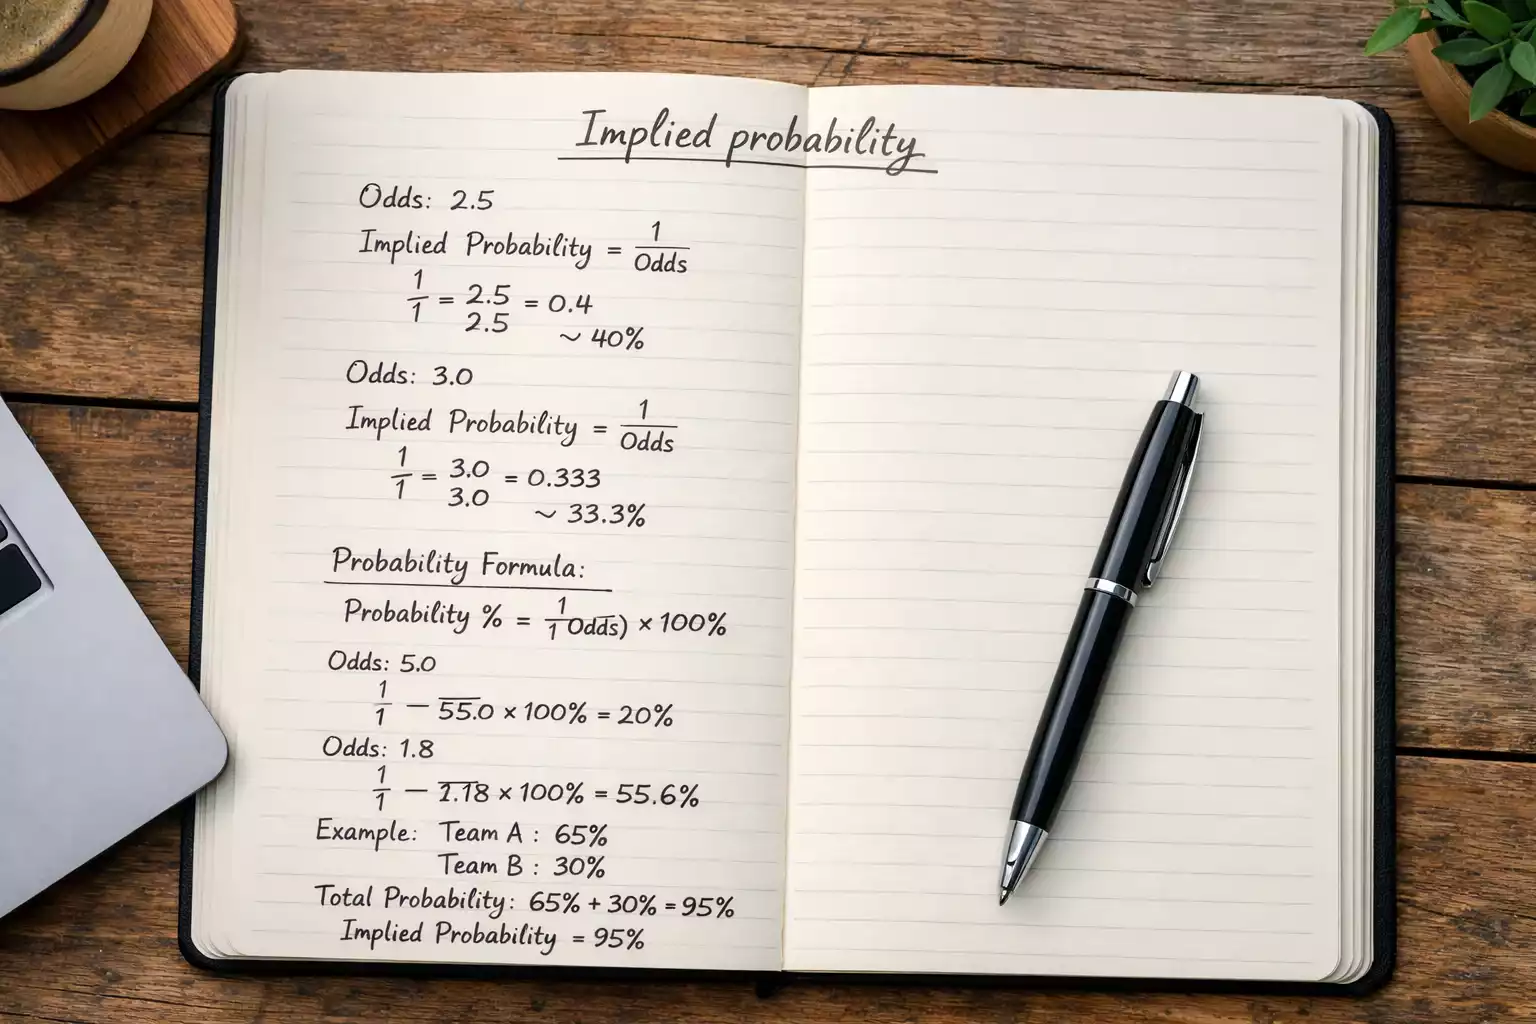 Implied probability
Odds: 2.5
Implied Probability = 1/Odds
1/1 = 2.5 2.5 = 0.4
~ 40%
Odds: 3.0
Implied Probability = 1/Odds
1/1 = 3.0 3.0 = 0.333
~ 33.3%
Probability Formula:
Probability % = 1/1 Odds) × 100%
Odds: 5.0
1/1 — 55.0 × 100% = 20%
Odds: 1.8
1/1 — 1.18 × 100% = 55.6%
Example: Team A : 65%
Team B : 30%
Total Probability: 65% + 30% = 95%
Implied Probability = 95%